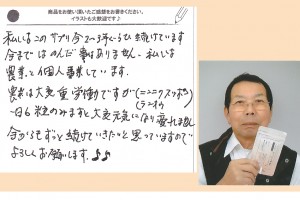 商品をお使い頂いたご感想をお書きください。
イラストも大歓迎です♪
私しはこのサプリ今2〜3年くらい続けています
今まではのんだ事はありません。私しは
農業と個人事業しています。
農業は大変重労働ですが(=ンニクスッポン)
一日6粒のみますと大変元気になり疲れません
今からもずっと続けていきたいと思っていますので
よろしくお願いします。♪♪